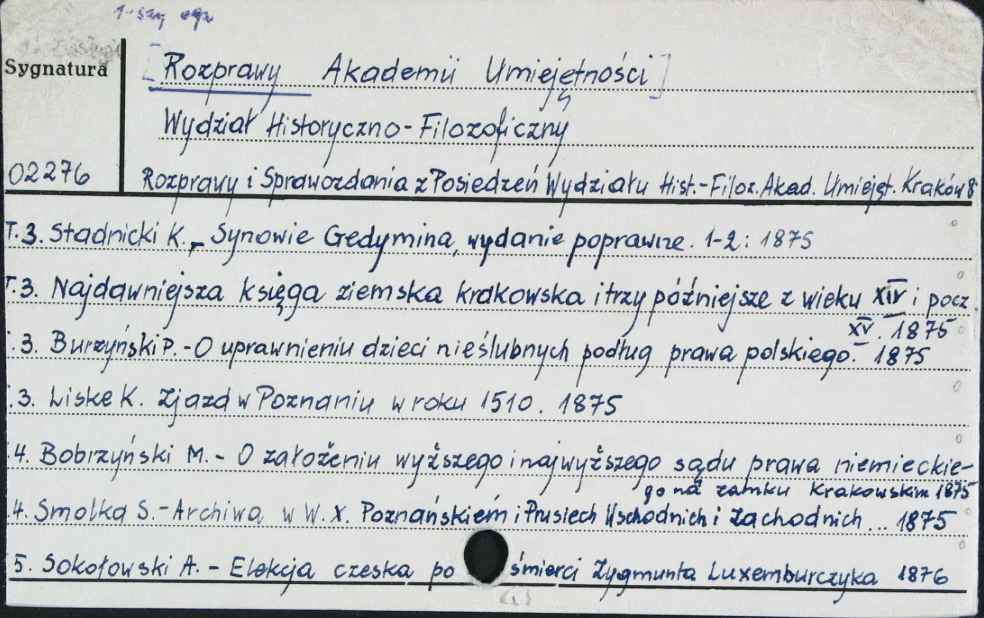 1-szy egz
Sygnatura
[Rozprawy Akademii Umiejętności]
Wydział Historyczno-Filozoficzny
02276
Rozprawy i Sprawozdania z Posiedzeń Wydziału Hist.-Filoz. Akad. Umiejęt. Kraków 8°
T.3. Stadnicki K. - Synowie Gedymina, wydanie poprawne. 1-2: 1875
T.3. Najdawniejsza księga ziemska krakowska i trzy późniejsze z wieku XIV i pocz.
XV. 1875
.3. Burzyński P. - O uprawnieniu dzieci nieślubnych podług prawa polskiego. 1875
.3. Liske K. Zjazd w Poznaniu w roku 1510. 1875
.4. Bobrzyński M. - O założeniu wyższego i najwyższego sądu prawa niemieckie-
go na zamku krakowskim 1875
.4. Smolka S. - Archiwa w W. X. Poznańskiém i Prusiech Wschodnich i Zachodnich... 1875
.5. Sokołowski A. - Elekcja czeska po śmierci Zygmunta Luxemburczyka 1876